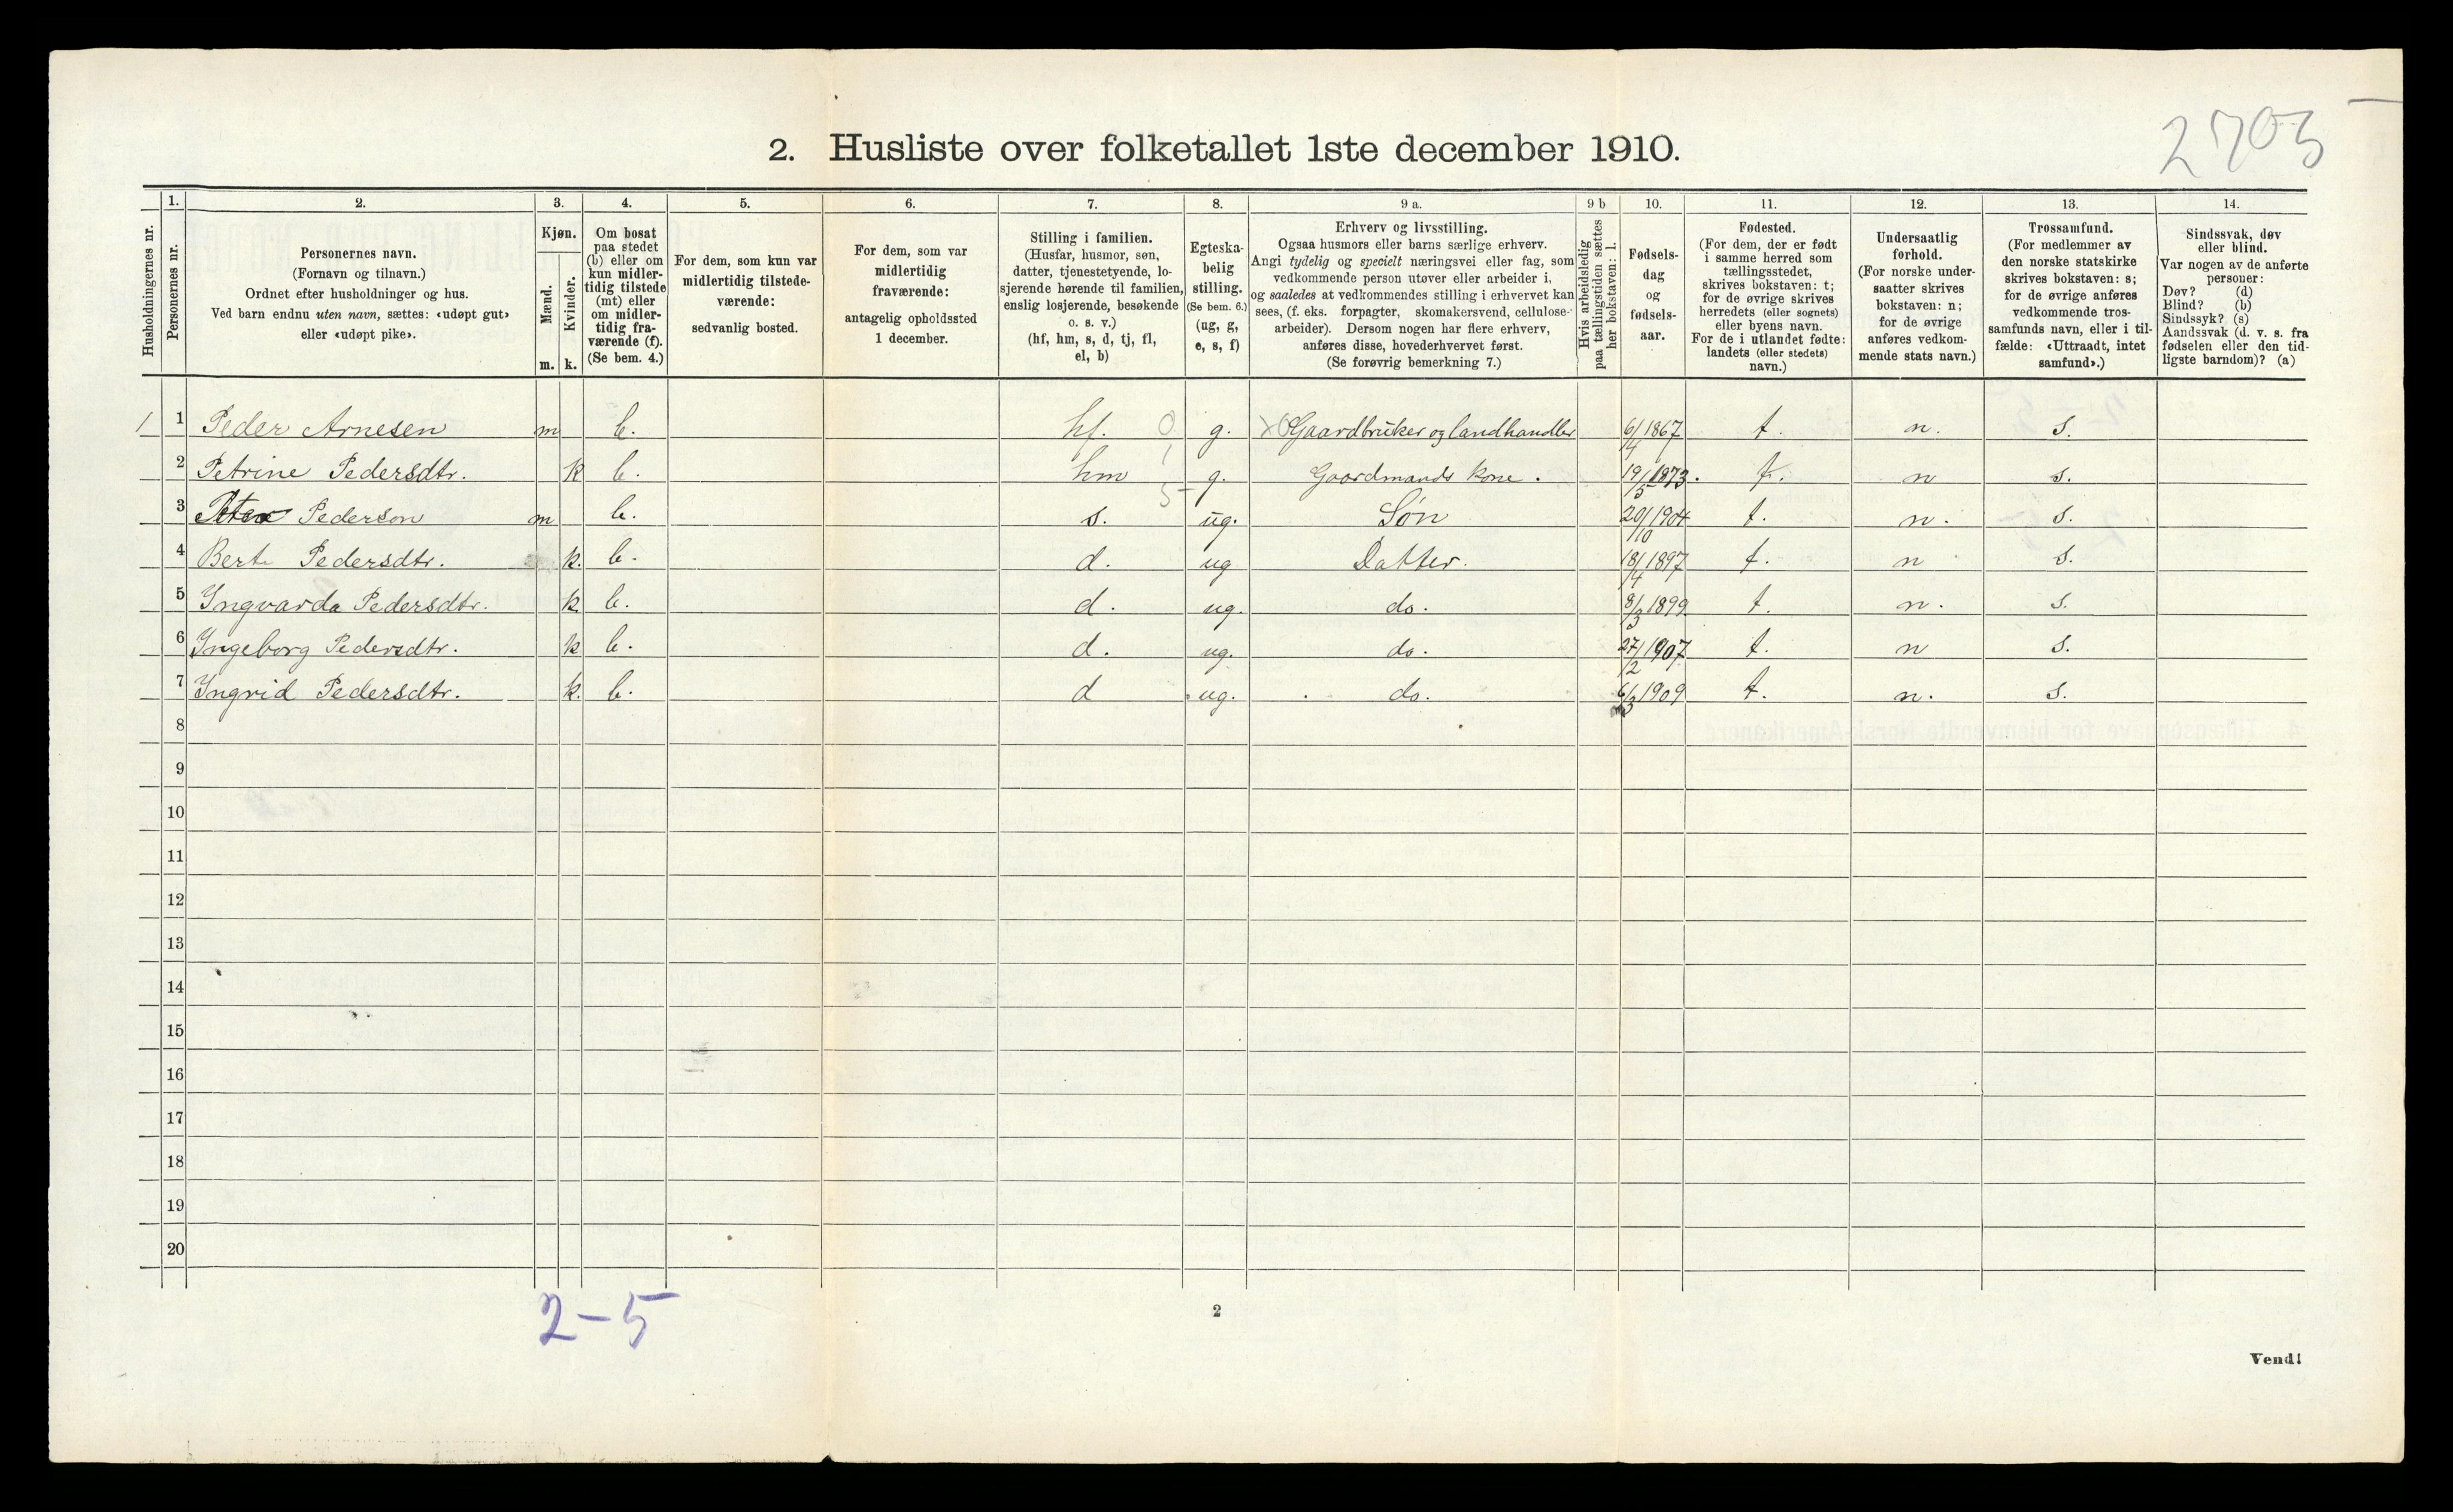 2703
2. Husliste over folketallet 1ste december 1910.
1. 2. 3. 4. 5. 6. 7. 8. 9 a. 9 b 10. 11. 12. 13. 14.
Husholdningernes nr.
Personernes nr.
Personernes navn.
(Fornavn og tilnavn.)
Ordnet efter husholdninger og hus.
Ved barn endnu uten navn, sættes: «udøpt gut»
eller «udøpt pike».
Kjøn.
Mænd.
Kvinder.
m. k.
Om bosat
paa stedet
(b) eller om
kun midler-
tidig tilstede
(mt) eller
om midler-
tidig fra-
værende (f).
(Se bem. 4.)
For dem, som kun var
midlertidig tilstede-
værende:
sedvanlig bosted.
For dem, som var
midlertidig
fraværende:
antagelig opholdssted
1 december.
Stilling i familien.
(Husfar, husmor, søn,
datter, tjenestetyende, lo-
sjerende hørende til familien,
enslig losjerende, besøkende
o. s. v.)
(hf, hm, s, d, tj, fl,
el, b)
Egteska-
belig
stilling.
(Se bem. 6.)
(ug, g,
e, s, f)
Erhverv og livsstilling.
Ogsaa husmors eller barns særlige erhverv.
Angi tydelig og specielt næringsvei eller fag, som
vedkommende person utøver eller arbeider i,
og saaledes at vedkommendes stilling i erhvervet kan
sees, (f. eks. forpagter, skomakersvend, cellulose-
arbeider). Dersom nogen har flere erhverv,
anføres disse, hovederhvervet først.
(Se forøvrig bemerkning 7.)
Hvis arbeidsledig
paa tællingstiden sættes
her bokstaven: l.
Fødsels-
dag
og
fødsels-
aar.
Fødested.
(For dem, der er født
i samme herred som
tællingsstedet,
skrives bokstaven: t;
for de øvrige skrives
herredets (eller sognets)
eller byens navn.
For de i utlandet fødte:
landets (eller stedets)
navn.)
Undersaatlig
forhold.
(For norske under-
saatter skrives
bokstaven: n;
for de øvrige
anføres vedkom-
mende stats navn.)
Trossamfund.
(For medlemmer av
den norske statskirke
skrives bokstaven: s;
for de øvrige anføres
vedkommende tros-
samfunds navn, eller i til-
fælde: «Uttraadt, intet
samfund».)
Sindssvak, døv
eller blind.
Var nogen av de anførte
personer:
Døv? (d)
Blind? (b)
Sindssyk? (s)
Aandssvak (d. v. s. fra
fødselen eller den tid-
ligste barndom)? (a)
1 1 Peder Arnesen m b. hf. 0 g. X0 Gaardbruker og landhandler 6/4 1867 t. n. s.
2 Petrine Pedersdtr. k b. hm 1 g. Gaardmands kone. 19/5 1873. t. n s.
3 Pederson m b. s. 5 ug. Søn 20/10 1904 t. n. s.
4 Bert Pedersdtr. k. b. d. ug Datter. 18/4 1897 t. n s.
5 Ingvarda Pedersdtr. k b. d. ug. do. 8/3 1899 t. n. s.
6 Ingeborg Pedersdtr. k b. d. ug. do. 27/2 1907 t. n s.
7 Ingrid Pedersdtr. k. b. d ug. do. 6/3 1909 t. n. s.
8
9
10
11
12
13
14
15
16
17
18
19
20
2-5
2
Vend!